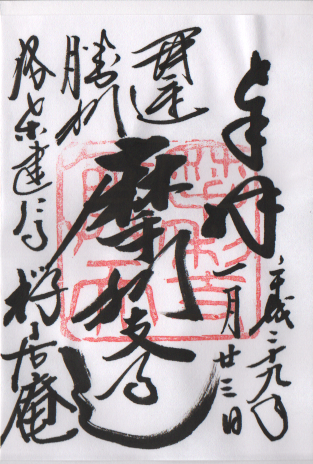 奉拝
平成二十九年
一月廿三日
開運
勝利
摩利支尊天
洛東建仁寺
禅居庵